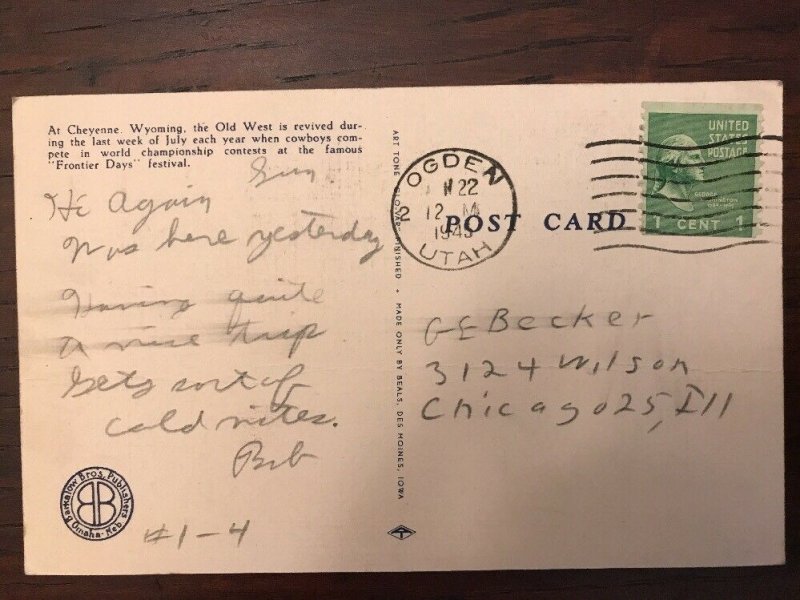 At Cheyenne, Wyoming, the Old West is revived dur-
ing the last week of July each year when cowboys com-
pete in world championship contests at the famous
"Frontier Days" festival.
Sun.
Hi Again
Was here yesterday
Having quite
a nice trip
Gets sort of
cold nites.
Bob
#1-4
Barkalow Bros. Publishers
Omaha - Neb
B B
ART TONE GLOVAR FINISHED
MADE ONLY BY BEALS, DES MOINES, IOWA
OGDEN
22
2
12 M
194
UTAH
POST CARD
UNITED
STATES
POSTAGE
GEORGE
WASHINGTON
1 CENT 1
G E Becker
3124 Wilson
Chicago 25, Ill